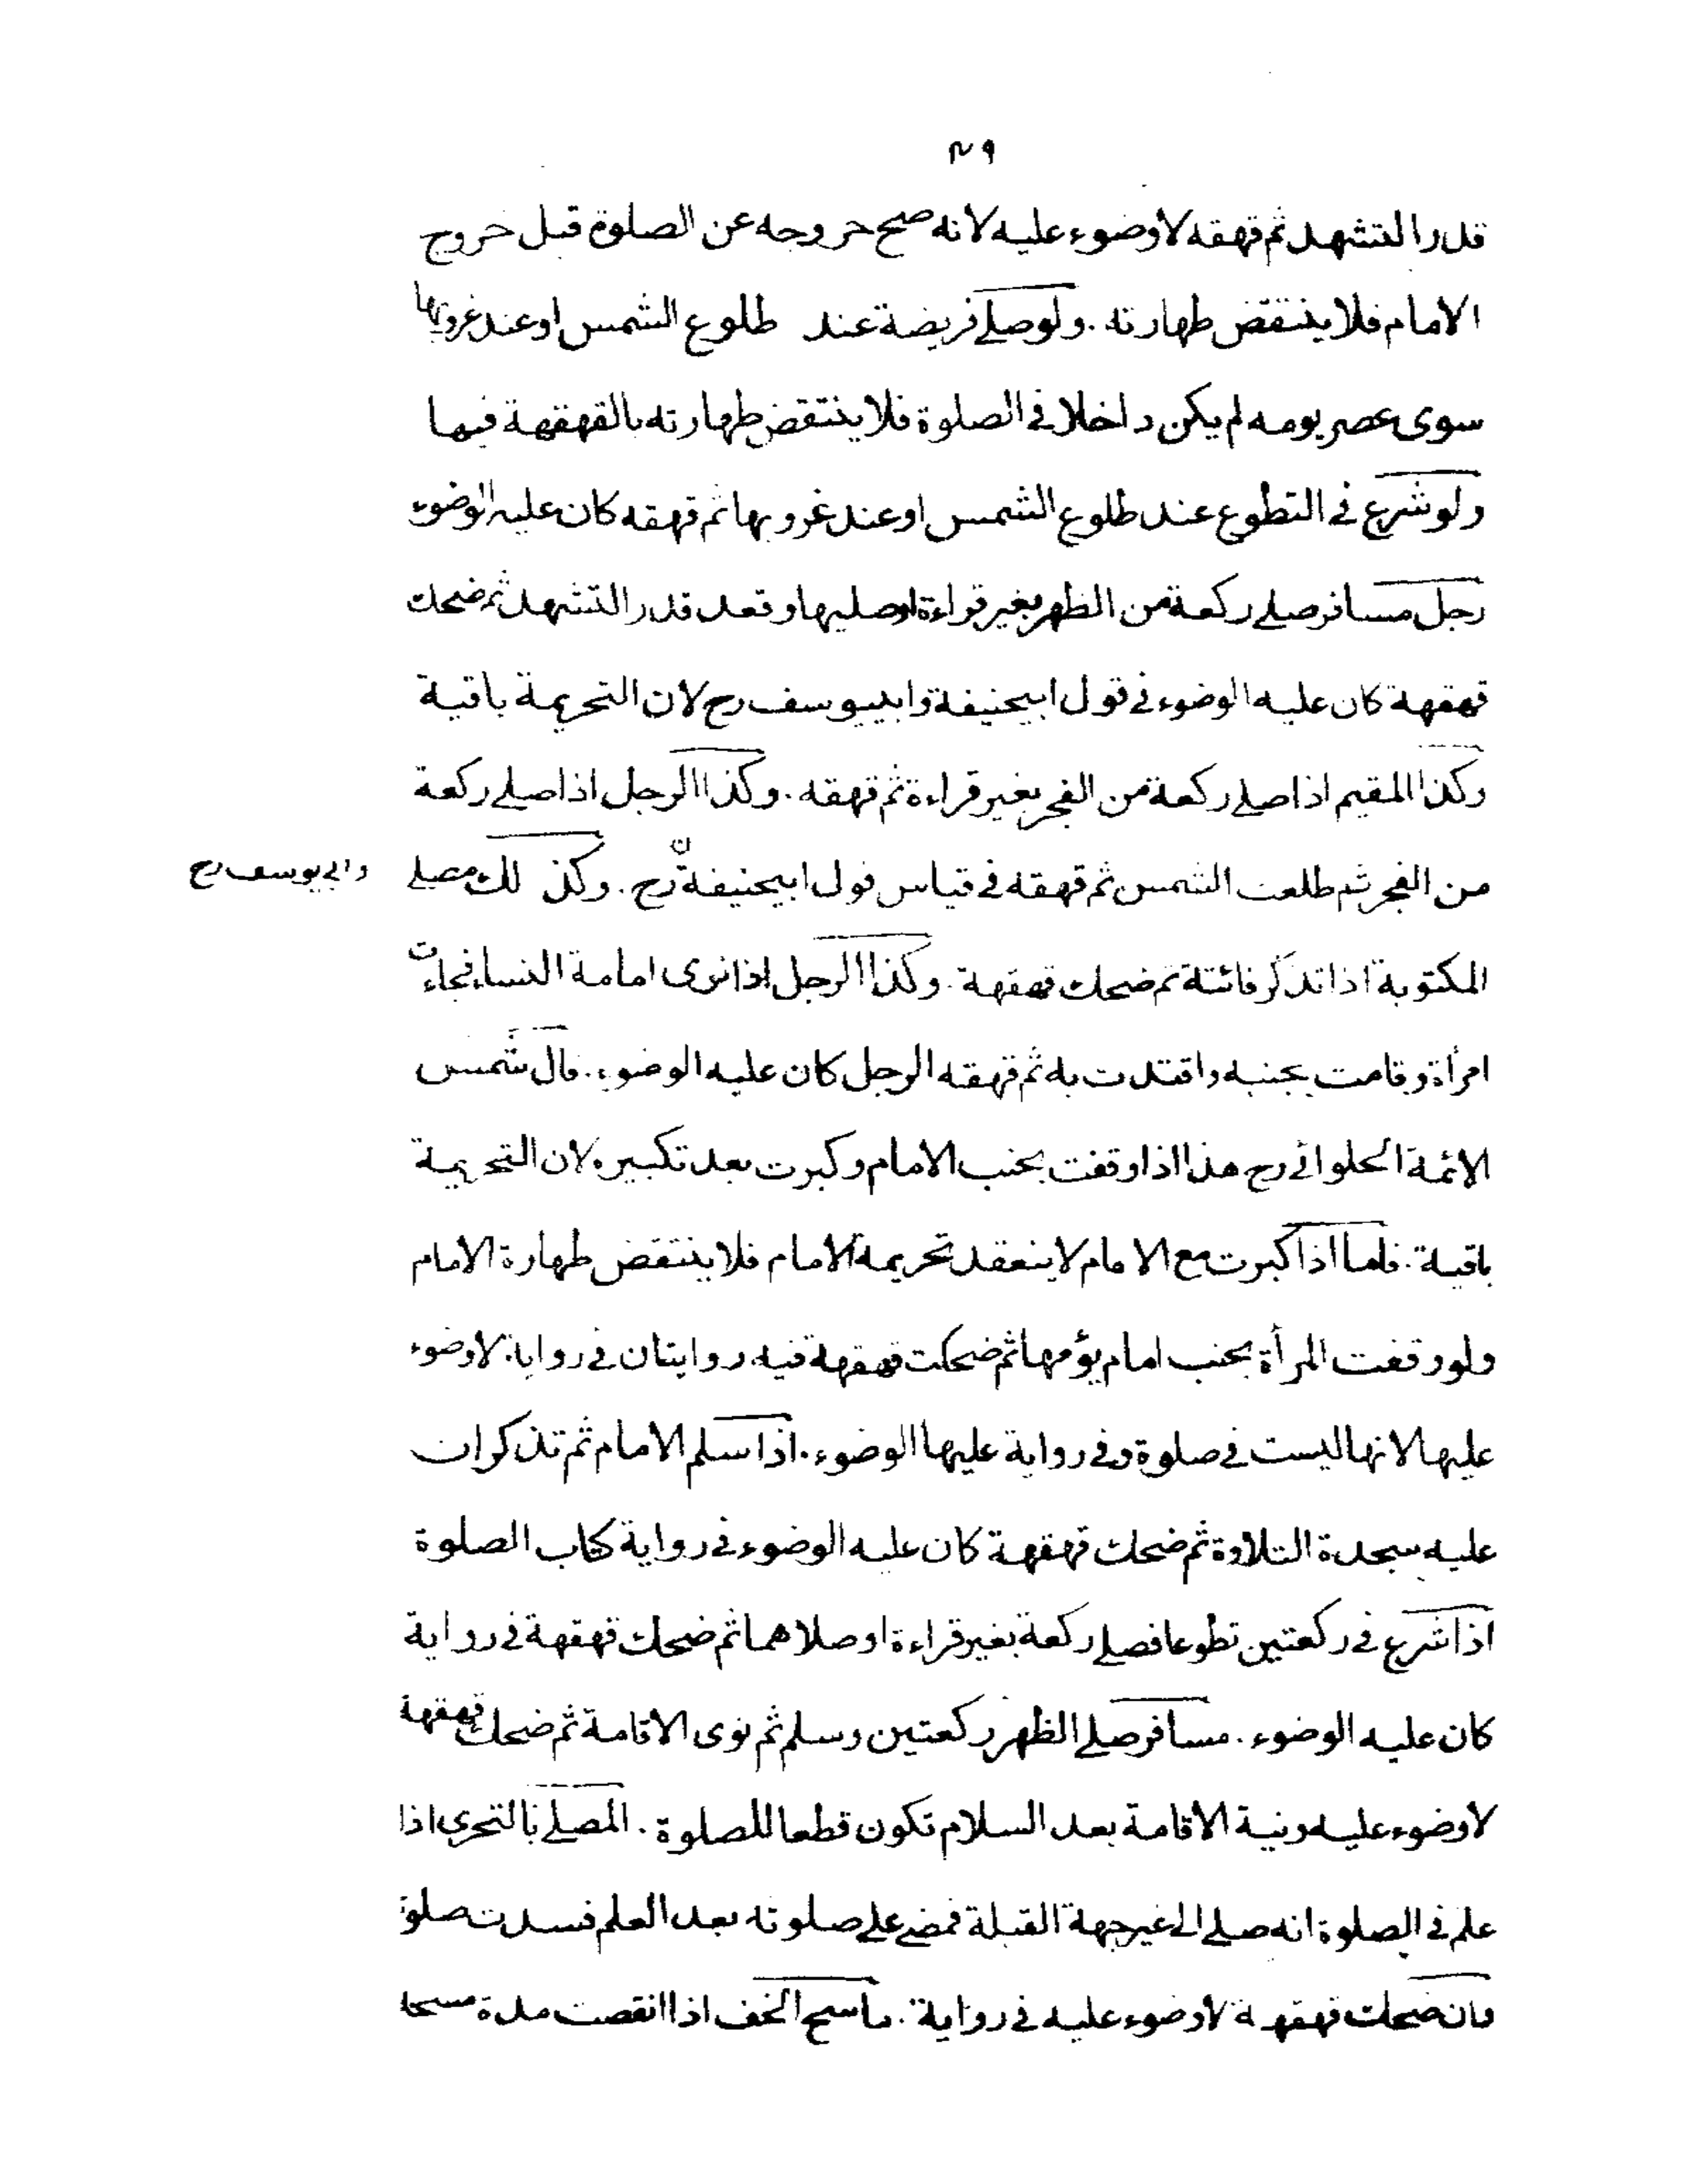 ٤٩
قدر التشهد ثم قهقه لا وضوء عليه لانه صح خروجه عن الصلوة قبل خروج
الامام فلا ينتقض طهارته . ولو صلے فريضة عند طلوع الشمس او عند غروبها
سوى عصر يومه لم يكن داخلا فى الصلوة فلا ينتقض طهارته بالقهقهة فيها
ولو شرع فى التطوع عند طلوع الشمس او عند غروبها ثم قهقه كان عليه الوضوء
رجل مسافر صلے ركعة من الظهر بغير قراءة او صليها وقعد قدر التشهد ثم ضحك
قهقهة كان عليه الوضوء فى قول ابيحنيفة وابييوسف رح لان التحريمة باقية
وكذا المقيم اذا صلے ركعة من الفجر بغير قراءة ثم قهقه . وكذا الرجل اذا صلے ركعة
من الفجر ثم طلعت الشمس ثم قهقه فى قياس قول ابيحنيفة رح . وكذلك مصلے
وابى يوسف رح
المكتوبة اذا تذكر فائتة ثم ضحك قهقهة . وكذا الرجل اذا نوى امامة النساء فجاءت
امرأة وقامت بجنبه واقتدت به ثم قهقه الرجل كان عليه الوضوء . قال شمس
الائمة الحلوائى رح هذا اذا وقفت بجنب الامام وكبرت بعد تكبيره لان التحريمة
باقية . فاما اذا كبرت مع الامام لا ينعقد تحريمة الامام فلا ينتقض طهارة الامام
ولو وقفت المرأة بجنب امام يؤمها ثم ضحكت قهقهة فيه روايتان فى رواية لا وضوء
عليها لانها ليست فى صلوة وفى رواية عليها الوضوء . اذا سلم الامام ثم تذكر ان
عليه سجدة التلاوة ثم ضحك قهقهة كان عليه الوضوء فى رواية كتاب الصلوة
اذا شرع فى ركعتين تطوعا فصلے ركعة بغير قراءة او صلاهما ثم ضحك قهقهة فى رواية
كان عليه الوضوء . مسافر صلے الظهر ركعتين وسلم ثم نوى الاقامة ثم ضحك قهقهة
لا وضوء عليه ونية الاقامة بعد السلام تكون قطعا للصلوة . المصلے بالتحرى اذا
علم فى الصلوة انه صلے الى غير جهة القبلة فمضے علے صلوته بعد العلم فسدت صلوة
وان ضحك قهقهة لا وضوء عليه فى رواية . ماسح الخف اذا انقصت مدة مسحا